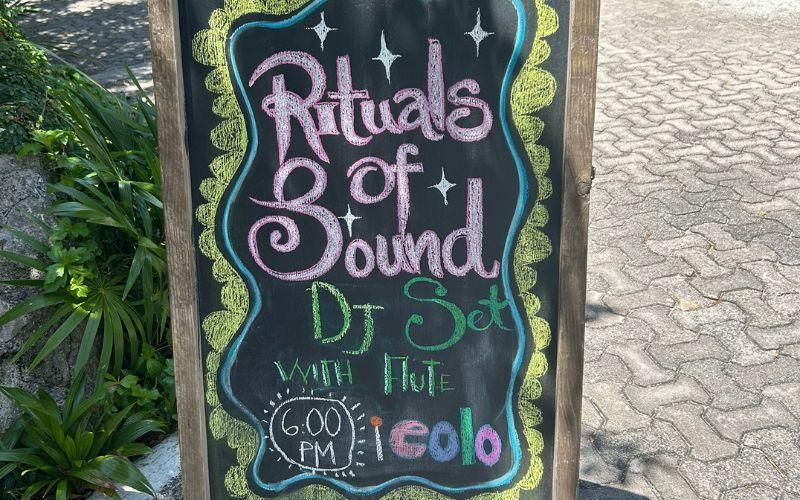 Rituals
of
Sound
DJ Set
WITH FLUTE
6:00
PM
icolo